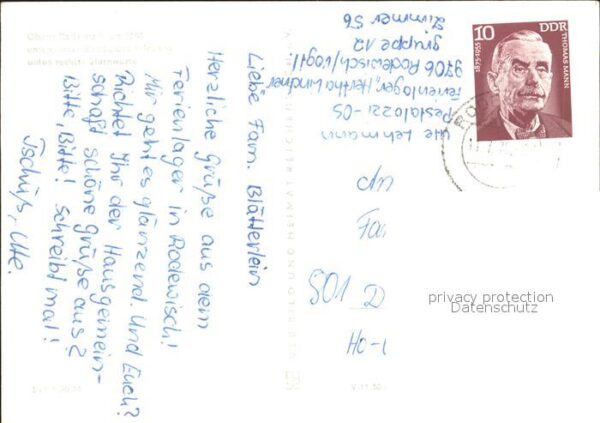 Liebe Fam. Blätterlein
Herzliche Grüße aus dem
Ferienlager in Rodewisch!
Mir geht es glänzend. Und Euch?
Richtet Ihr der Hausgemein-
schaft schöne Grüße aus?
Bitte, Bitte! Schreibt mal!
Tschüß, Ute.
Ute Lehmann
Pestalozzi-OS
Ferienlager „Hertha Lindner
9706 Rodewisch/Vogtl
Gruppe 12
Zimmer 56
10
DDR
1875-1955
THOMAS MANN
An
Fam
801 D
Ho-
privacy protection
Datenschutz